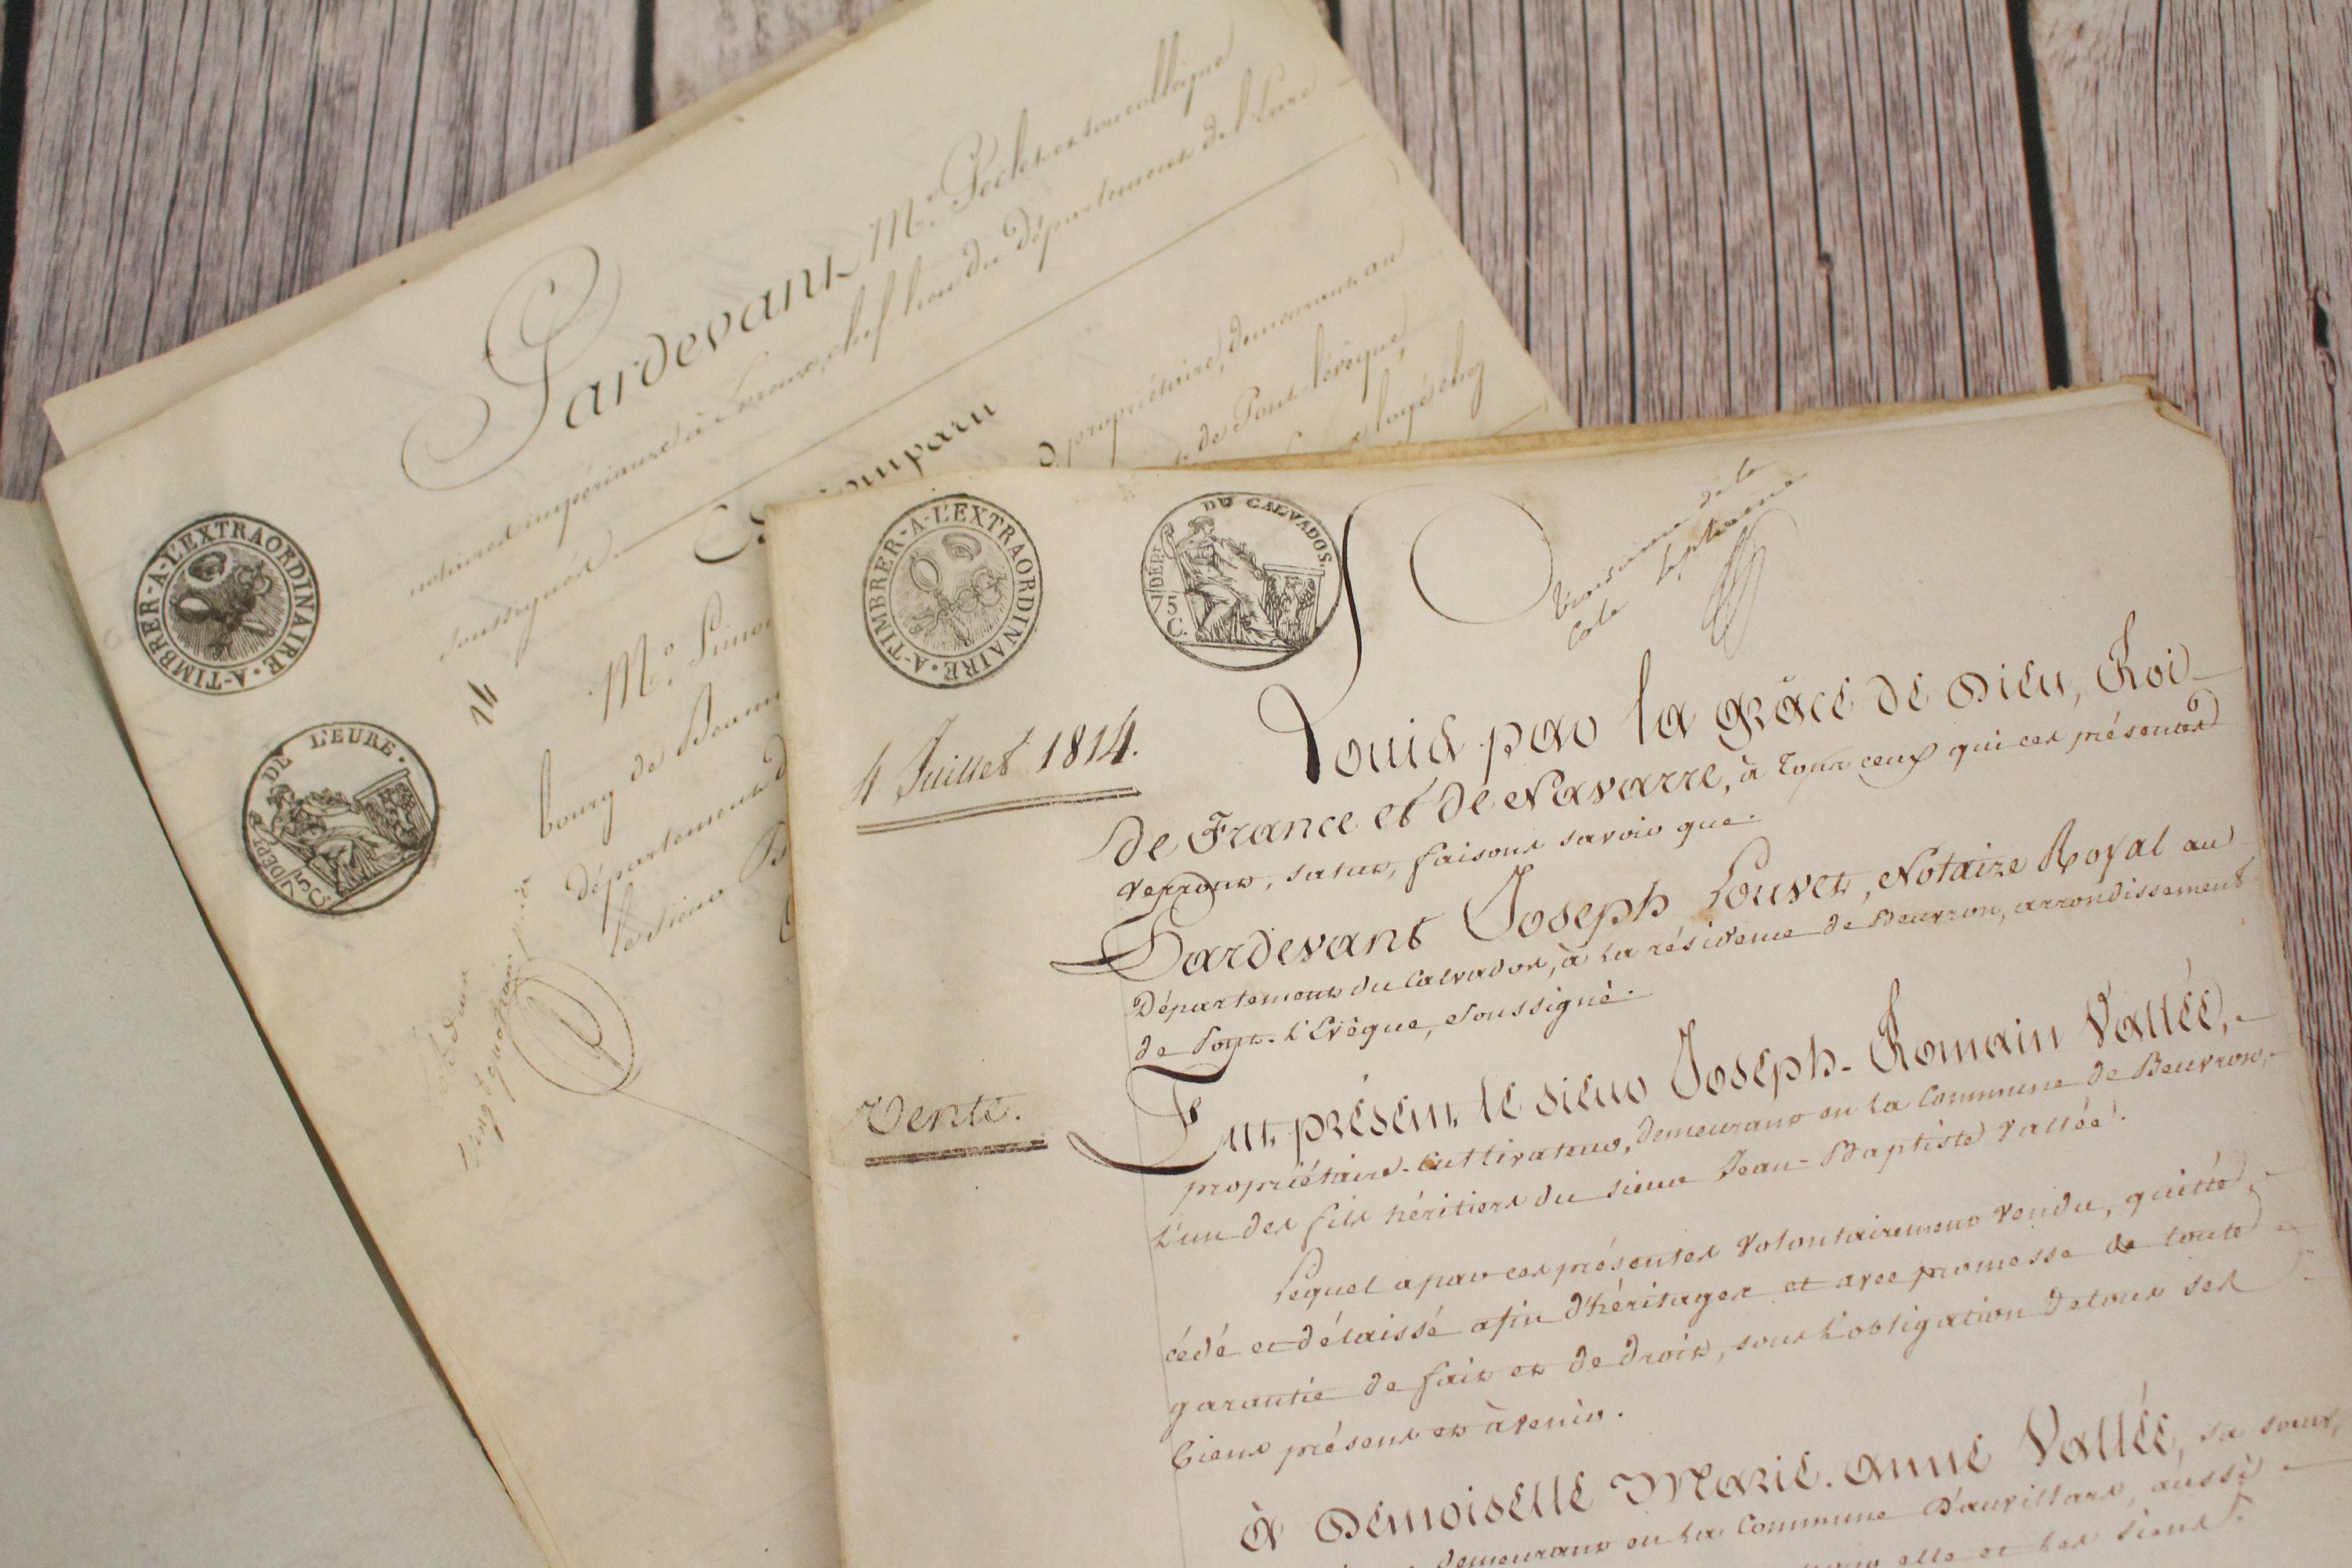 Pardevant Me. Peclet et son collègue
notaires impériaux à Evreux, chef lieu du département de l'Eure
soussignés
comparu
Me. Simon
propriétaire, demeurant au
bourg de Beaum
de Pont-l'évêque,
département d
logé chez
le sieur
A-TIMBRER-A-L'EXTRAORDINAIRE
DEPT. DE L'EURE.
75 C.
14
A-TIMBRER-A-L'EXTRAORDINAIRE
DEPT. DU CALVADOS.
75 C.
4 Juillet 1814.
Vente.
Louis par la grâce de Dieu, Roi
de France et de Navarre, à tous ceux qui ces présentes
verrons, salut, faisons savoir que.
Pardevant Joseph Louvet, Notaire Royal au
Département du Calvados, à la résidence de Beuvron, arrondissement
de Pont-l'Evêque, soussigné.
Fut présent le sieur Joseph-Romain Vallée,
propriétaire-cultivateur, demeurant en la Commune de Beuvron,
l'un des fils héritiers du sieur Jean-Baptiste Vallée.
Lequel a par ces présentes volontairement vendu, quitté
cédé et délaissé afin d'héritages et avec promesse de toute
garantie de fait et de droit, sous l'obligation de tous ses
biens présens et à venir.
à Demoiselle Marie-anne Vallée, sa soeur,
demeurant en la Commune d'auvillars, aussi
elle et les siens.